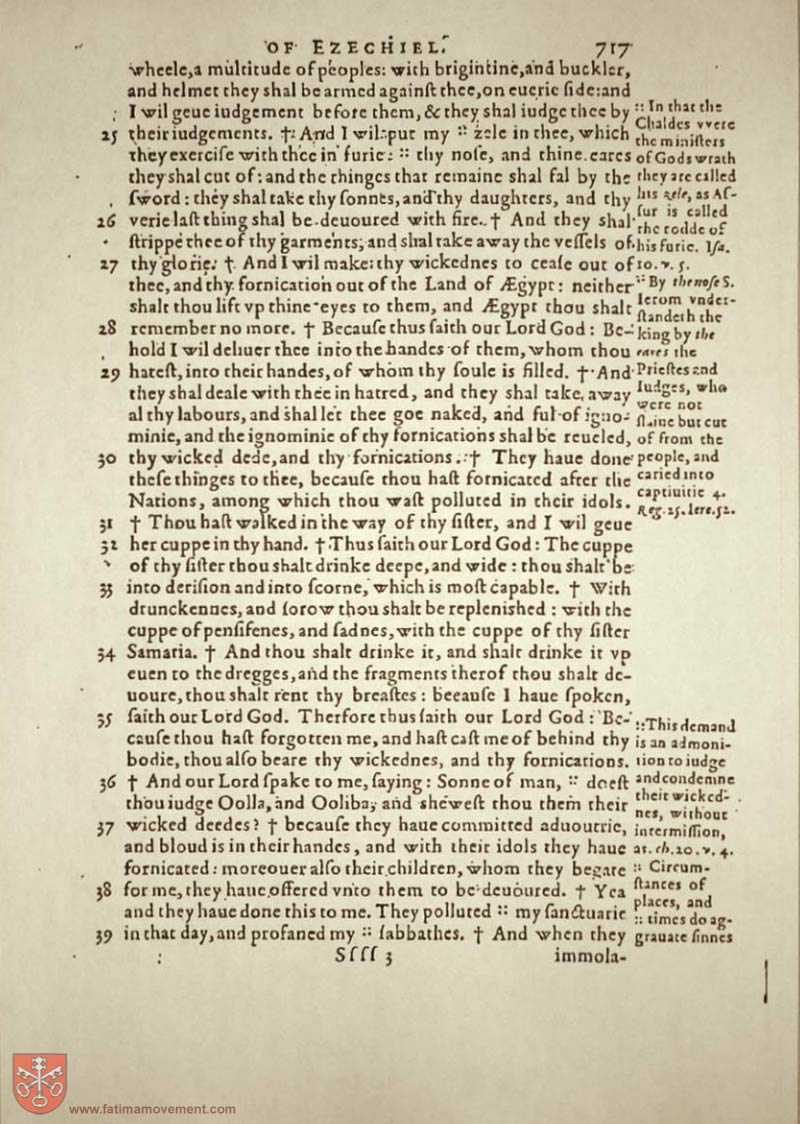 OF EZECHIEL. 717
wheele, a multitude of peoples: with brigintine, and buckler,
and helmet they shal be armed againſt thee, on euerie ſide: and
I wil geue iudgement before them, & they shal iudge thee by
25 their iudgements. † And I wil put my :: zele in thee, which
they exerciſe with thee in furie: :: thy noſe, and thine eares
they shal cut of: and the thinges that remaine shal fal by the
ſword: they shal take thy ſonnes, and thy daughters, and thy
26 verie laſt thing shal be deuoured with fire. † And they shal
ſtrippe thee of thy garments, and shal take away the veſſels of
27 thy glorie. † And I wil make thy wickednes to ceaſe out of
thee, and thy fornication out of the Land of Ægypt: neither
shalt thou lift vp thine eyes to them, and Ægypt thou shalt
28 remember no more. † Becauſe thus ſaith our Lord God: Be-
hold I wil deliuer thee into the handes of them, whom thou
29 hateſt, into their handes, of whom thy ſoule is filled. † And
they shal deale with thee in hatred, and they shal take away
al thy labours, and shal let thee goe naked, and ful of igno-
minie, and the ignominie of thy fornications shal be reueled,
30 thy wicked dede, and thy fornications. † They haue done
theſe thinges to thee, becauſe thou haſt fornicated after the
Nations, among which thou waſt polluted in their idols.
31 † Thou haſt walked in the way of thy ſiſter, and I wil geue
32 her cuppe in thy hand. † Thus ſaith our Lord God: The cuppe
of thy ſiſter thou shalt drinke deepe, and wide: thou shalt be
33 into deriſion and into ſcorne, which is moſt capable. † With
drunckennes, and ſorow thou shalt be replenished: with the
cuppe of penſifenes, and ſadnes, with the cuppe of thy ſiſter
34 Samaria. † And thou shalt drinke it, and shalt drinke it vp
euen to the dregges, and the fragments therof thou shalt de-
uoure, thou shalt rent thy breaſtes: becauſe I haue ſpoken,
35 ſaith our Lord God. Therfore thus ſaith our Lord God: Be-
cauſe thou haſt forgotten me, and haſt caſt me of behind thy
bodie, thou alſo beare thy wickednes, and thy fornications.
36 † And our Lord ſpake to me, ſaying: Sonne of man, :: doeſt
thou iudge Oolla, and Ooliba, and sheweſt thou them their
37 wicked deedes? † becauſe they haue committed aduoutrie,
and bloud is in their handes, and with their idols they haue
fornicated: moreouer alſo their children, whom they begate
38 for me, they haue offered vnto them to be deuoured. † Yea
and they haue done this to me. They polluted :: my ſanctuarie
39 in that day, and profaned my :: ſabbathes. † And when they
Sſſſ 3 immola-
:: In that the
Chaldes vvere
the miniſters
of Gods wrath
they are called
his zele, as Aſ-
ſur is called
the rodde of
his furie. Iſa.
10. v. 5.
:: By the noſe S.
Ierom vnder-
ſtandeth the
king by the
eares the
Prieſtes and
Iudges, who
were not
ſlaine but cut
of from the
people, and
caried into
captiuitie 4.
Reg. 25. Iere. 52.
:: This demand
is an admoni-
tion to iudge
and condemne
their wicked-
nes, without
intermiſſion,
as. ch. 20. v. 4.
:: Circum-
ſtances of
places, and
:: times do ag-
grauate ſinnes
www.fatimamovement.com